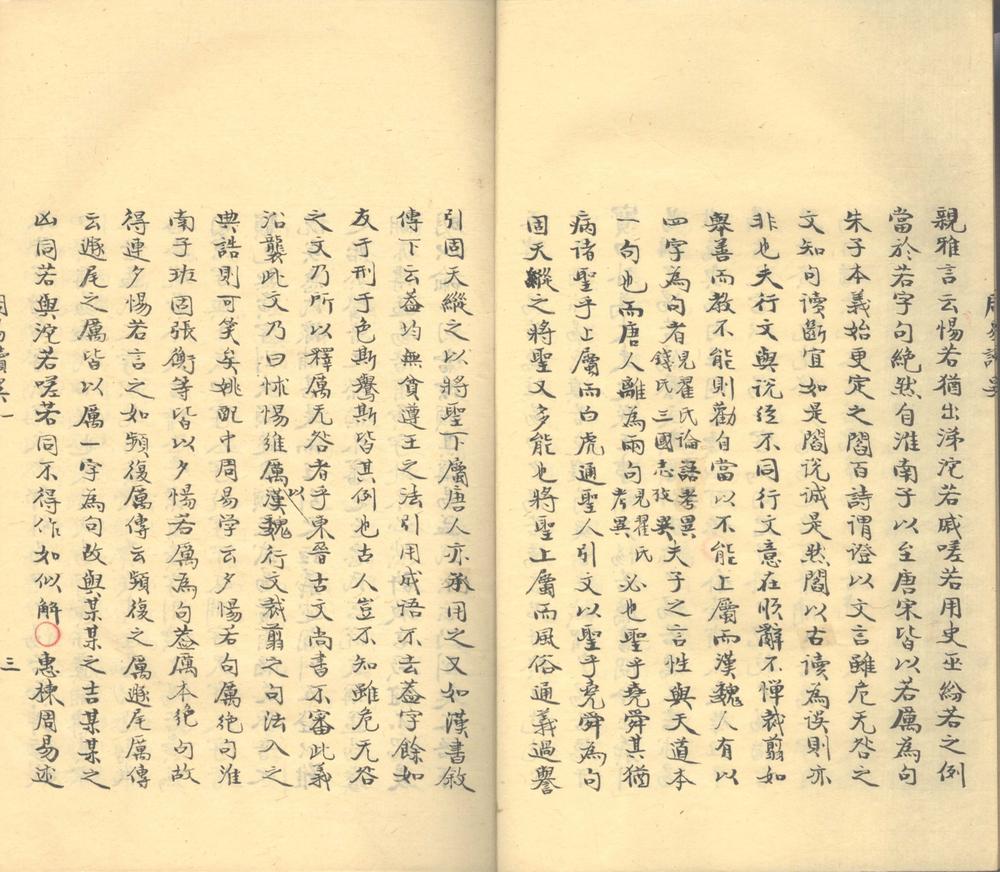 親雅言云惕若猶出涕沱若戚嗟若用史巫紛若之例
當於若字句絶然自淮南子以至唐宋皆以若厲為句
朱子本義始更定之閻百詩謂證以文言雖危无咎之
文知句讀斷宜如是閻説誠是然閻以古讀為误則亦
非也夫行文與说经不同行文意在順辭不惮裁剪如
舉善而教不能則勸自當以不能上屬而漢魏人有以
四字為句者見翟氏論語考異錢氏三國志攷異夫子之言性與天道本
一句也而唐人離為兩句見翟氏考異必也聖乎堯舜其猶
病诸聖乎上屬而白虎通聖人引文以聖乎堯舜為句
固天縱之將聖又多能也將聖上屬而風俗通義過譽
引固天縱之以將聖下屬唐人亦承用之又如漢書敘
傳下云葢均無貧遵王之法引用成语不去葢字餘如
友于刑于色斯舉斯皆其例也古人豈不知雖危无咎
之文乃所以釋厲无咎者乎東晉古文尚書不審此義
沿襲此文乃曰怵惕維厲以漢魏行文裁剪之句法入之
典誥則可笑矣姚配中周易学云夕惕若句厲绝句淮
南子班固張衡等皆以夕惕若厲為句葢厲本绝句故
得連夕惕若言之如頻復厲傳云頻復之厲遯尾厲傳
云遯尾之厲皆以厲一字為句故與某某之吉某某之
凶同若與沱若嗟若同不得作如似解〇惠棟周易述
三